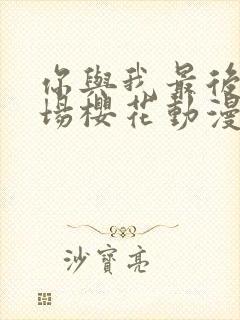 你與我最後
場櫻花動漫
沙寶亮